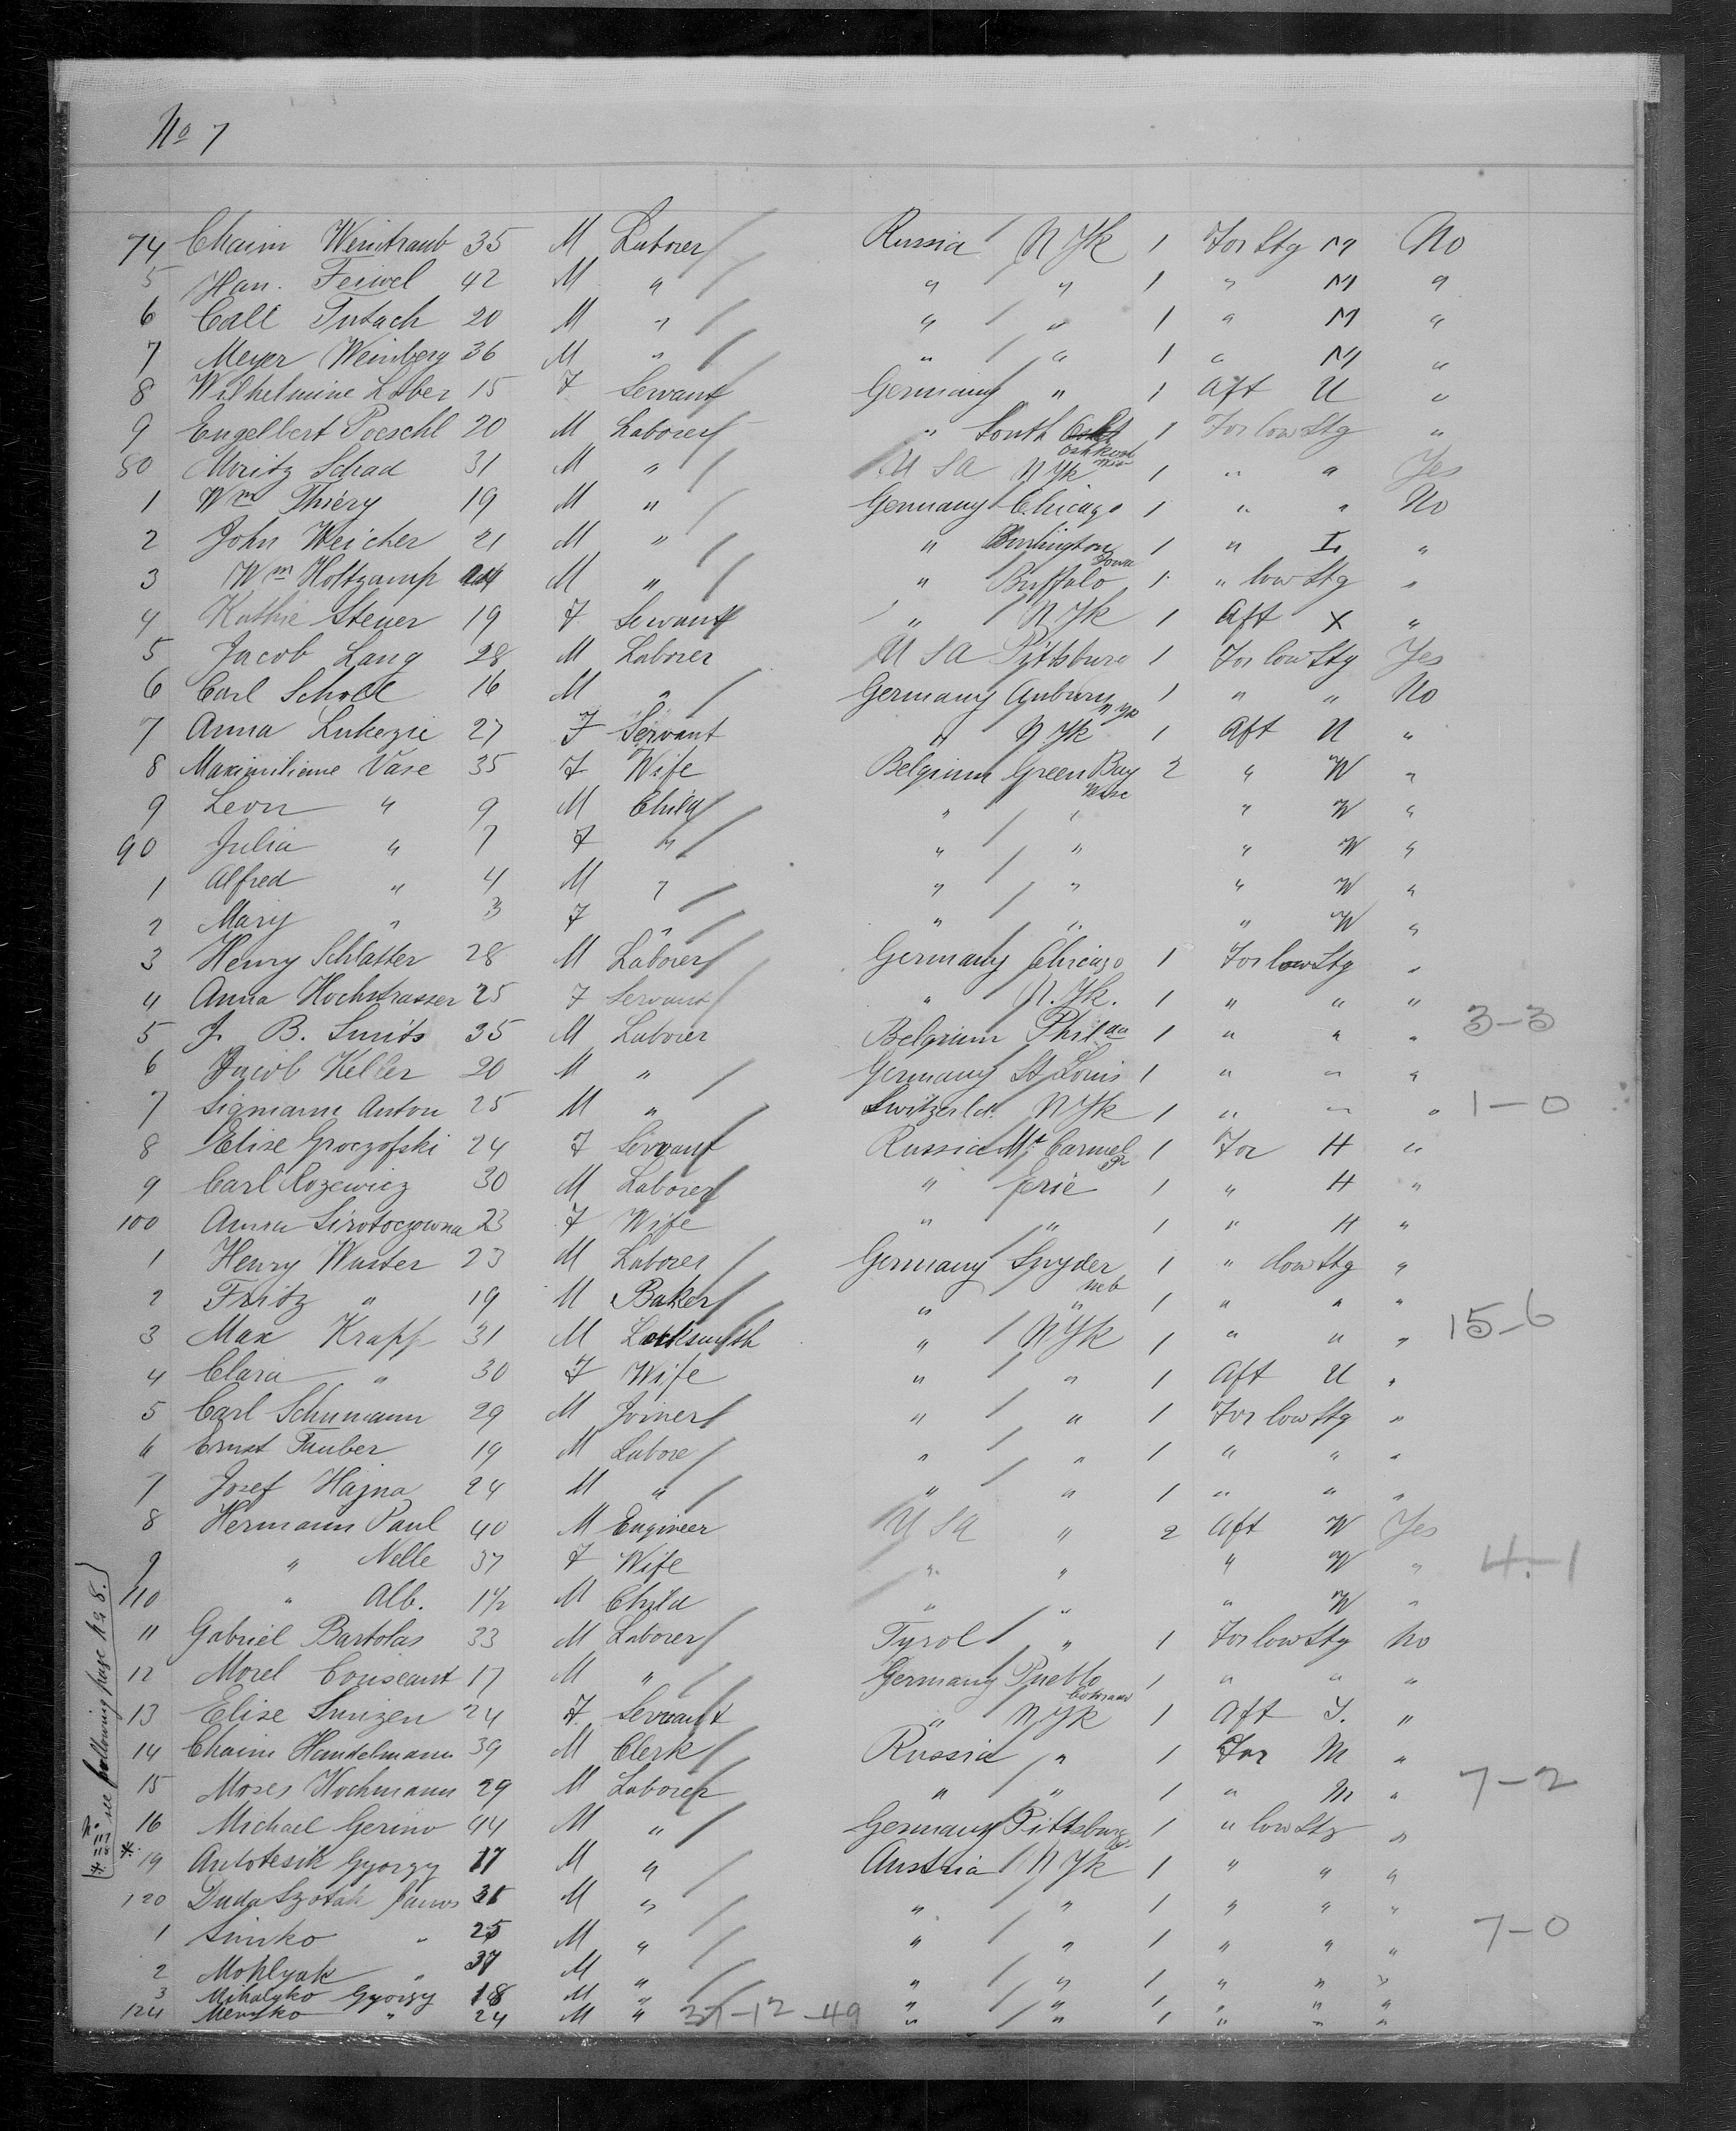 No 7
74 Chaim Weintraub 35 M Laborer Russia N Yk 1 For Stg M No
5 Han. Feiwel 42 M " " " 1 " M "
6 Call Tutach 20 M " " " 1 " M "
7 Meyer Weinberg 36 M " " " 1 " M "
8 Wilhelmine Lober 15 F Servant Germany " 1 Aft U "
9 Engelbert Poeschl 20 M Laborer " South 1 For low Stg "
Oshkosh Wis
80 Moritz Schad 31 M " U S A N Yk 1 " " Yes
1 Wm Thiéry 19 M " Germany Chicago 1 " " No
2 John Weicher 21 M " " Burlington 1 " I "
Iowa
3 Wm Holtzamp M " " Buffalo 1 " low Stg "
4 Kathie Steuer 19 F Servant " N Yk 1 Aft X "
5 Jacob Lang 28 M Laborer U S A Pittsburg 1 For low Stg Yes
6 Carl Scholl 16 M " Germany Auburn 1 " " No
N Yk
7 Anna Lukezie 27 F Servant " N.Yk 1 Aft U "
8 Maximiliene Vase 35 F Wife Belgium Green Bay 2 " W "
Wisc
9 Leon " 9 M Child " " " W "
90 Julia " 7 F " " " " W "
1 Alfred " 4 M " " " " W "
2 Mary " 3 F " " " " W "
3 Henry Schlatter 28 M Laborer Germany Chicago 1 For low Stg "
4 Anna Hochstrasser 25 F Servant " N.Yk. 1 " " "
5 J. B. Smits 35 M Laborer Belgium Philda 1 " " " 3-3
6 Jacob Keller 20 M " Germany St Louis 1 " " "
7 Sigmann Anton 25 M " Switzerld. N Yk 1 " " " 1-0
8 Elise Groczofski 24 F Servant Russia Mt Carmel 1 For H "
Pa
9 Carl Rozewicz 30 M Laborer " Erie 1 " H "
100 Anna Sirotoczowna 23 F Wife " " 1 " H "
1 Henry Wuster 23 M Laborer Germany Snyder 1 " low Stg "
neb
2 Fritz " 19 M Baker " " 1 " " "
3 Max Krapp 31 M Locksmyth " N Yk 1 " " " 15-6
4 Clara " 30 F Wife " " 1 Aft U "
5 Carl Schumann 29 M Joiner " " 1 For low Stg "
6 Ernst Tauber 19 M Labore " " 1 " " "
7 Josef Hajna 24 M " " " 1 " " "
8 Hermann Paul 40 M Engineer U S A " 2 Aft W Yes
9 " Nelle 37 F Wife " " " W " 4-1
110 " Alb. 1½ M Child " " " W "
11 Gabriel Bartolas 33 M Laborer Tyrol " 1 For low Stg No
12 Morel Couscant 17 M " Germany Pueblo 1 " " "
Colorado
13 Elise Sunzen 24 F Servant " N Yk 1 Aft S. "
14 Chaim Handelmann 39 M Clerk Russia " 1 For M "
15 Moses Hochmann 29 M Laborer " " 1 " M " 7-2
16 Michael Gerino 44 M " Germany Pittsburg 1 " low Stg "
* 19 Antotesik Gyorgy 17 M " Austria N Yk 1 " " "
120 Duda Szotak Janos 35 M " " " 1 " " "
1 Simko " 25 M " " " 1 " " " 7-0
2 Mohlyak " 37 M " " " 1 " " "
3 Mihalyko Gyorgy 18 M " " " 1 " " "
124 " 24 M " 37-12-49 " " 1 " " "
(* No 117 118 see following page No 8.)